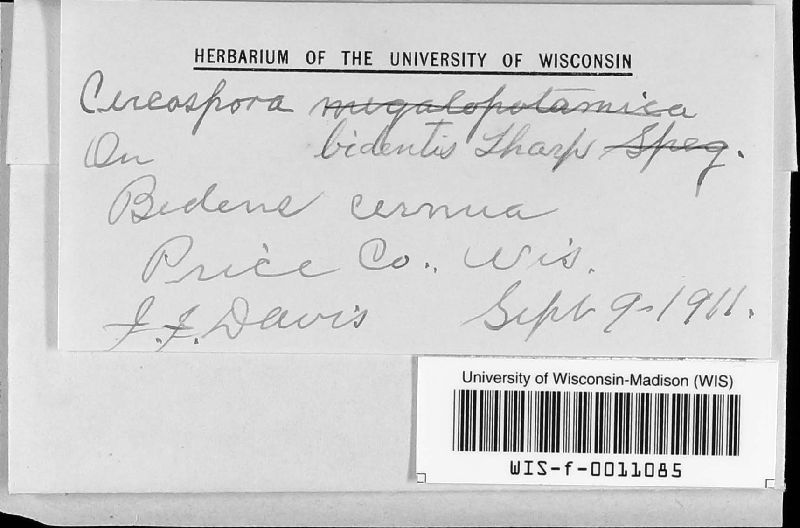 HERBARIUM OF THE UNIVERSITY OF WISCONSIN
Cercospora megalopotamica
On bidentis Tharp Speg.
Bidens cernua
Price Co., Wis.
J.J. Davis Sept 9-1911.
University of Wisconsin-Madison (WIS)
WIS-f-0011085